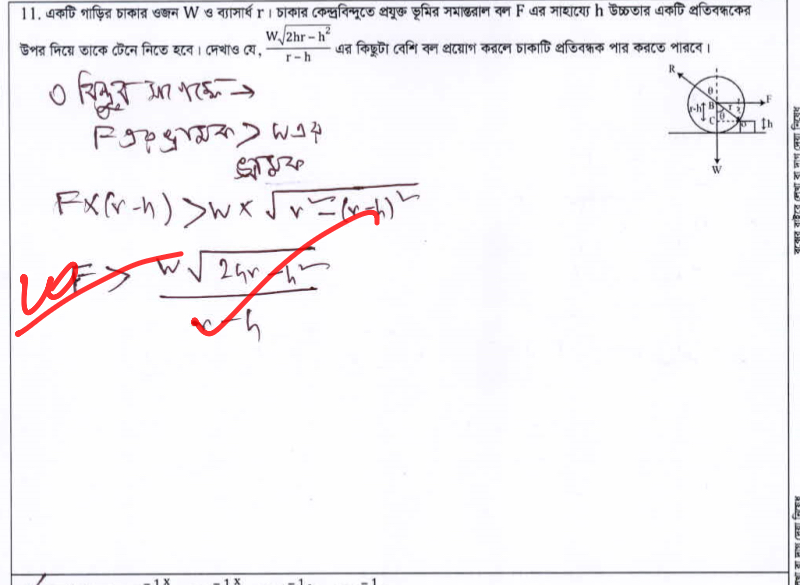 11. একটি গাড়ির চাকার ওজন W ও ব্যাসার্ধ r। চাকার কেন্দ্রবিন্দুতে প্রযুক্ত ভূমির সমান্তরাল বল F এর সাহায্যে h উচ্চতার একটি প্রতিবন্ধকের
উপর দিয়ে তাকে টেনে নিতে হবে। দেখাও যে, W√2hr − h² / r − h এর কিছুটা বেশি বল প্রয়োগ করলে চাকাটি প্রতিবন্ধক পার করতে পারবে।
R
θ
B
F
r-h
r
C
θ
h
W
O বিন্দুর সাপেক্ষে →
F এর ভ্রামক > W এর
ভ্রামক
F×(r-h) > W × √r² = (r-h)²
F > W√2hr - h² / r - h